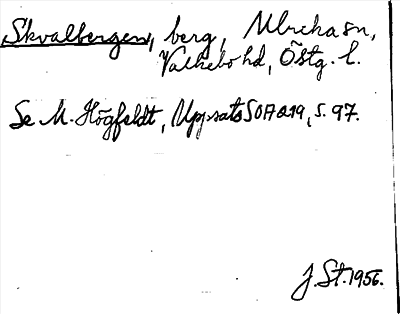 Skvalbergen, berg, Ulricha sn,
Valkebo hd, Östg. l.
Se M. Högfeldt, Uppsats SOFA 19, s. 97.
J. St. 1956.